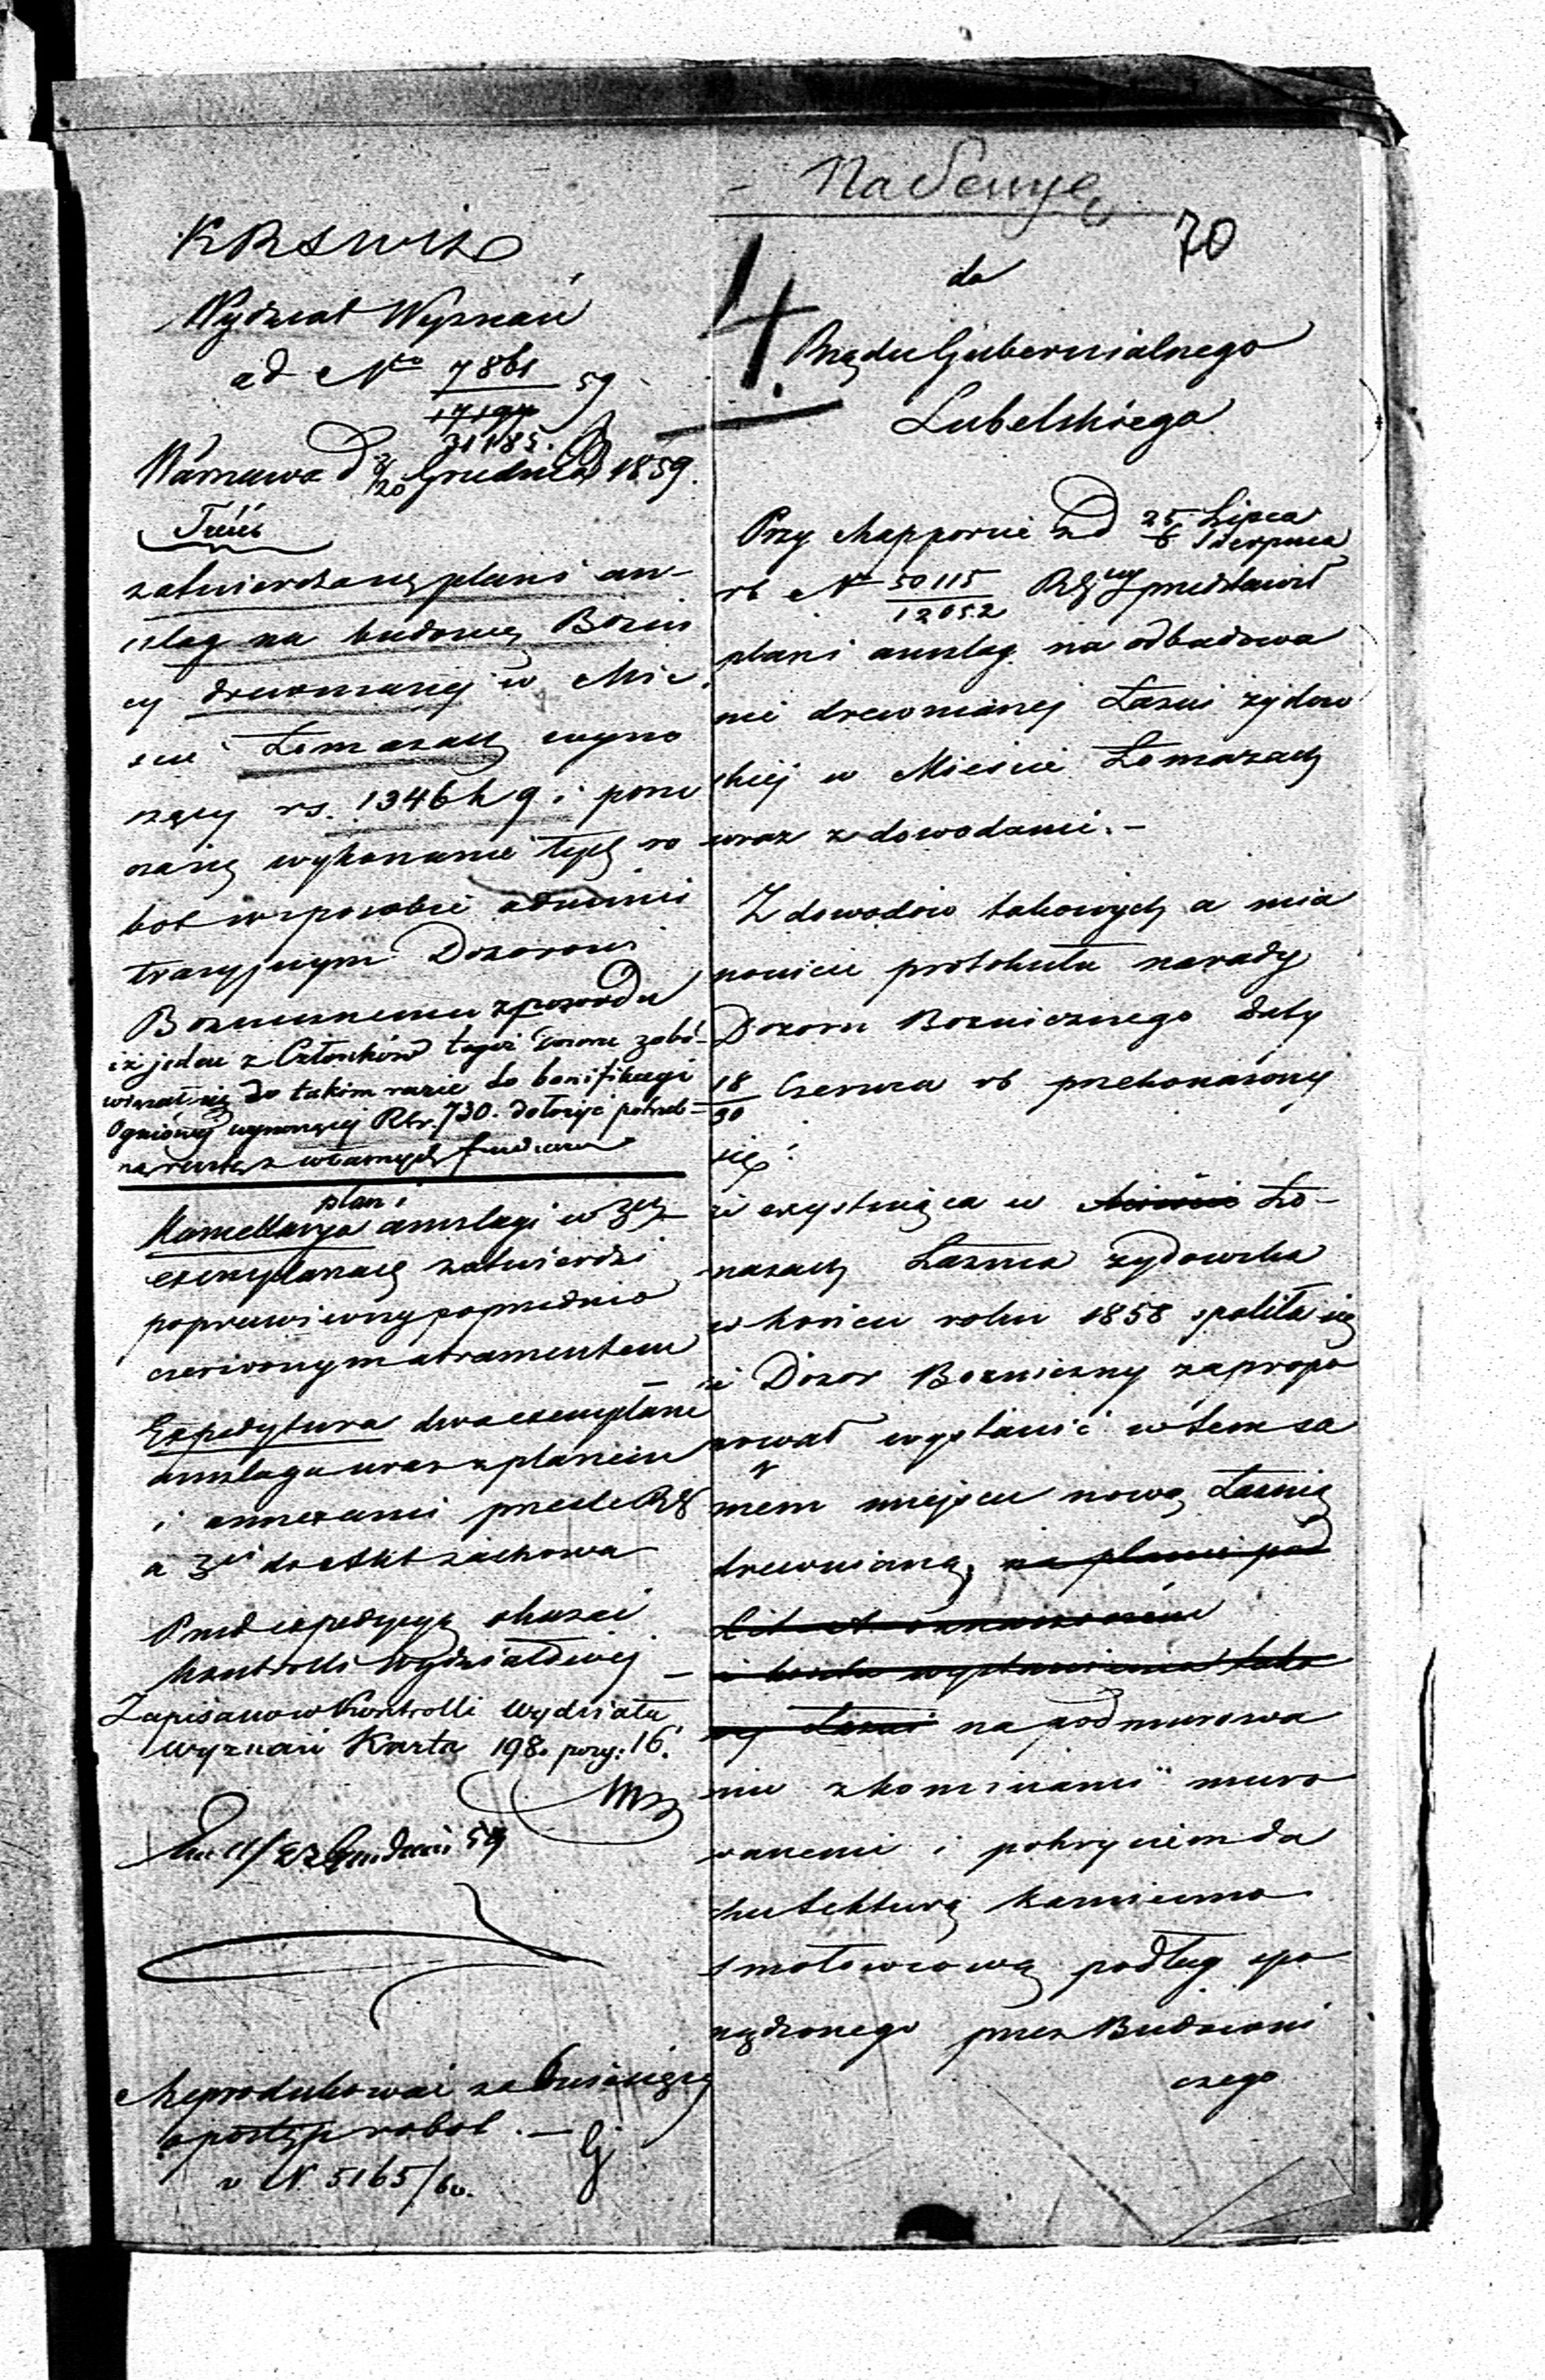 Na Sessyę
70
KRSWiD
Wydział Wyznań
ad No 7861
17194
31185. 59
Warszawa d 8/20 Grudnia 1859.
Treść
zatwierdza plan i an-
szlag na budowę
cy drewnianej w Mie-
ście Łomazach wyno
szący rs. 1346 k 9 i poru
wykonanie tych ro
bót w sposobie adminis
tracyjnym Dozorowi
Bożnicznemu z powodu
iż jeden z Członków tegoż zobo-
wiązał się w takim razie do bonifikacyi
Ogniowej wynoszącej Rsr. 730. dołożyć potrzeb-
ną resztę z własnych funduszów
plan i
Kancellarya anszlagi w 3ch
exemplarzach zatwierdzi
poprawiwszy poprzednio
czerwonym atramentem
Expedytura dwa exemplarze
anszlagu wraz z planem
i annexami prześle RG
a 3ci do Akt zachowa
Przed expedycyą okazać
kontrolli wydziałowej
Zapisano w Kontrolli Wydziału
Wyznań Karta 198. pozy: 16.
Grudnia 59
Reprodukować za 6 miesięcy
o postęp robót. —
v N. 5165/60.
4.
do
Rządu Gubernialnego
Lubelskiego
Przy Rapporcie z d 25 Lipca / 6 Sierpnia
rb No 50115/12052 RG przedstawił
plan i anszlag na odbudowa
nie drewnianej Łaźni żydow
skiej w Mieście Łomazach
wraz z dowodami. —
Z dowodów takowych a mia
nowicie protokułu narady
Dozoru Bożnicznego daty
18/30 Czerwca rb przekonawszy
się:
że exystująca w Ło-
mazach Łaźnia żydowska
w końcu roku 1858 spaliła się
że Dozór Bożniczny zapropo
nował wystawić w tem sa
mem miejscu nową Łaźnię
drewnianą, na planie pod
Lit A oznaczonem
wystawienia tako
wej Łaźni na podmurowa
niu z kominami muro
wanemi i pokryciem da
chu tekturą kamienno
smołowcową podług spo
rządzonego przez Budowni
czego